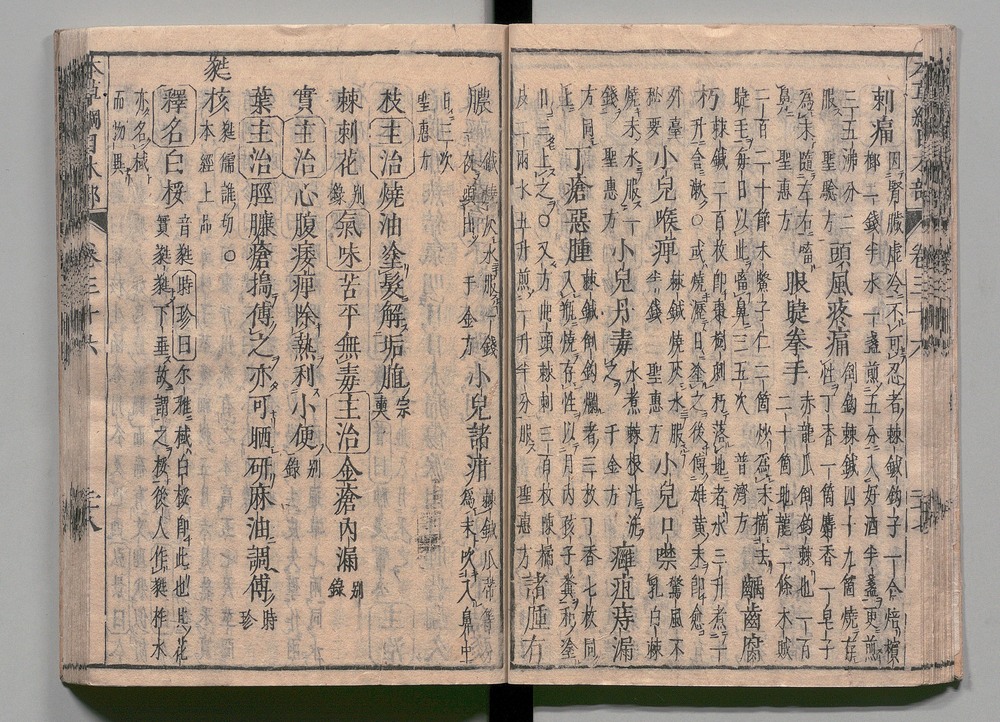 刺痛
因腎臟虛冷不可忍者棘鍼鉤子一合焙檳
榔二錢半水一盞煎五分入好酒半盞更煎
三五沸分二服聖惠方
頭風疼痛
倒鉤棘鍼四十九箇燒存性丁香一箇麝香一皂子
為末隨左右㗜鼻聖惠方
眼睫拳手
赤龍爪倒鉤棘也
一百二十箇地龍二條木賊
一百二十節木鱉子仁二箇炒為末摘去
睫毛每日以此㗜鼻三五次普濟方
齲齒腐
朽
棘鍼二百枚即棗樹刺朽落地者水三升煮一
升含漱○或燒瀝日塗之後傅雄黃末即愈
外臺祕要
小兒喉痹
棘鍼燒灰水服半錢聖惠方
小兒口噤
驚風不乳白棘
燒末水服一錢聖惠方
小兒丹毒
水煮棘根汁洗之千金方
癰疽痔漏
方同上
丁瘡惡腫
棘鍼倒鉤爛者三枚丁香七枚同
入瓶燒存性以月內孩子糞和塗
日三上之○又方曲頭棘刺三百枚陳橘
皮二兩水五升煎一升半分服聖惠方
諸腫有
膿
棘鍼燒灰水服一錢
一夜即出千金方
小兒諸疳
棘鍼瓜蒂等分
為末吹入鼻中
日三次
聖惠方
枝主治燒油塗髮解垢䐈宗奭
棘刺花別錄氣味苦平無毒主治金瘡內漏別錄
實主治心腹痿痹除熱利小便別錄
葉主治脛臁瘡搗傅之亦可晒研麻油調傅時珍
蕤核
蕤儒誰切○
本經上品
釋名白桵音蕤時珍曰爾雅棫白桵即此也其花
實蕤蕤下垂故謂之桵後人作蕤柞木
亦名棫
而物異
本草綱目木部 卷三十六